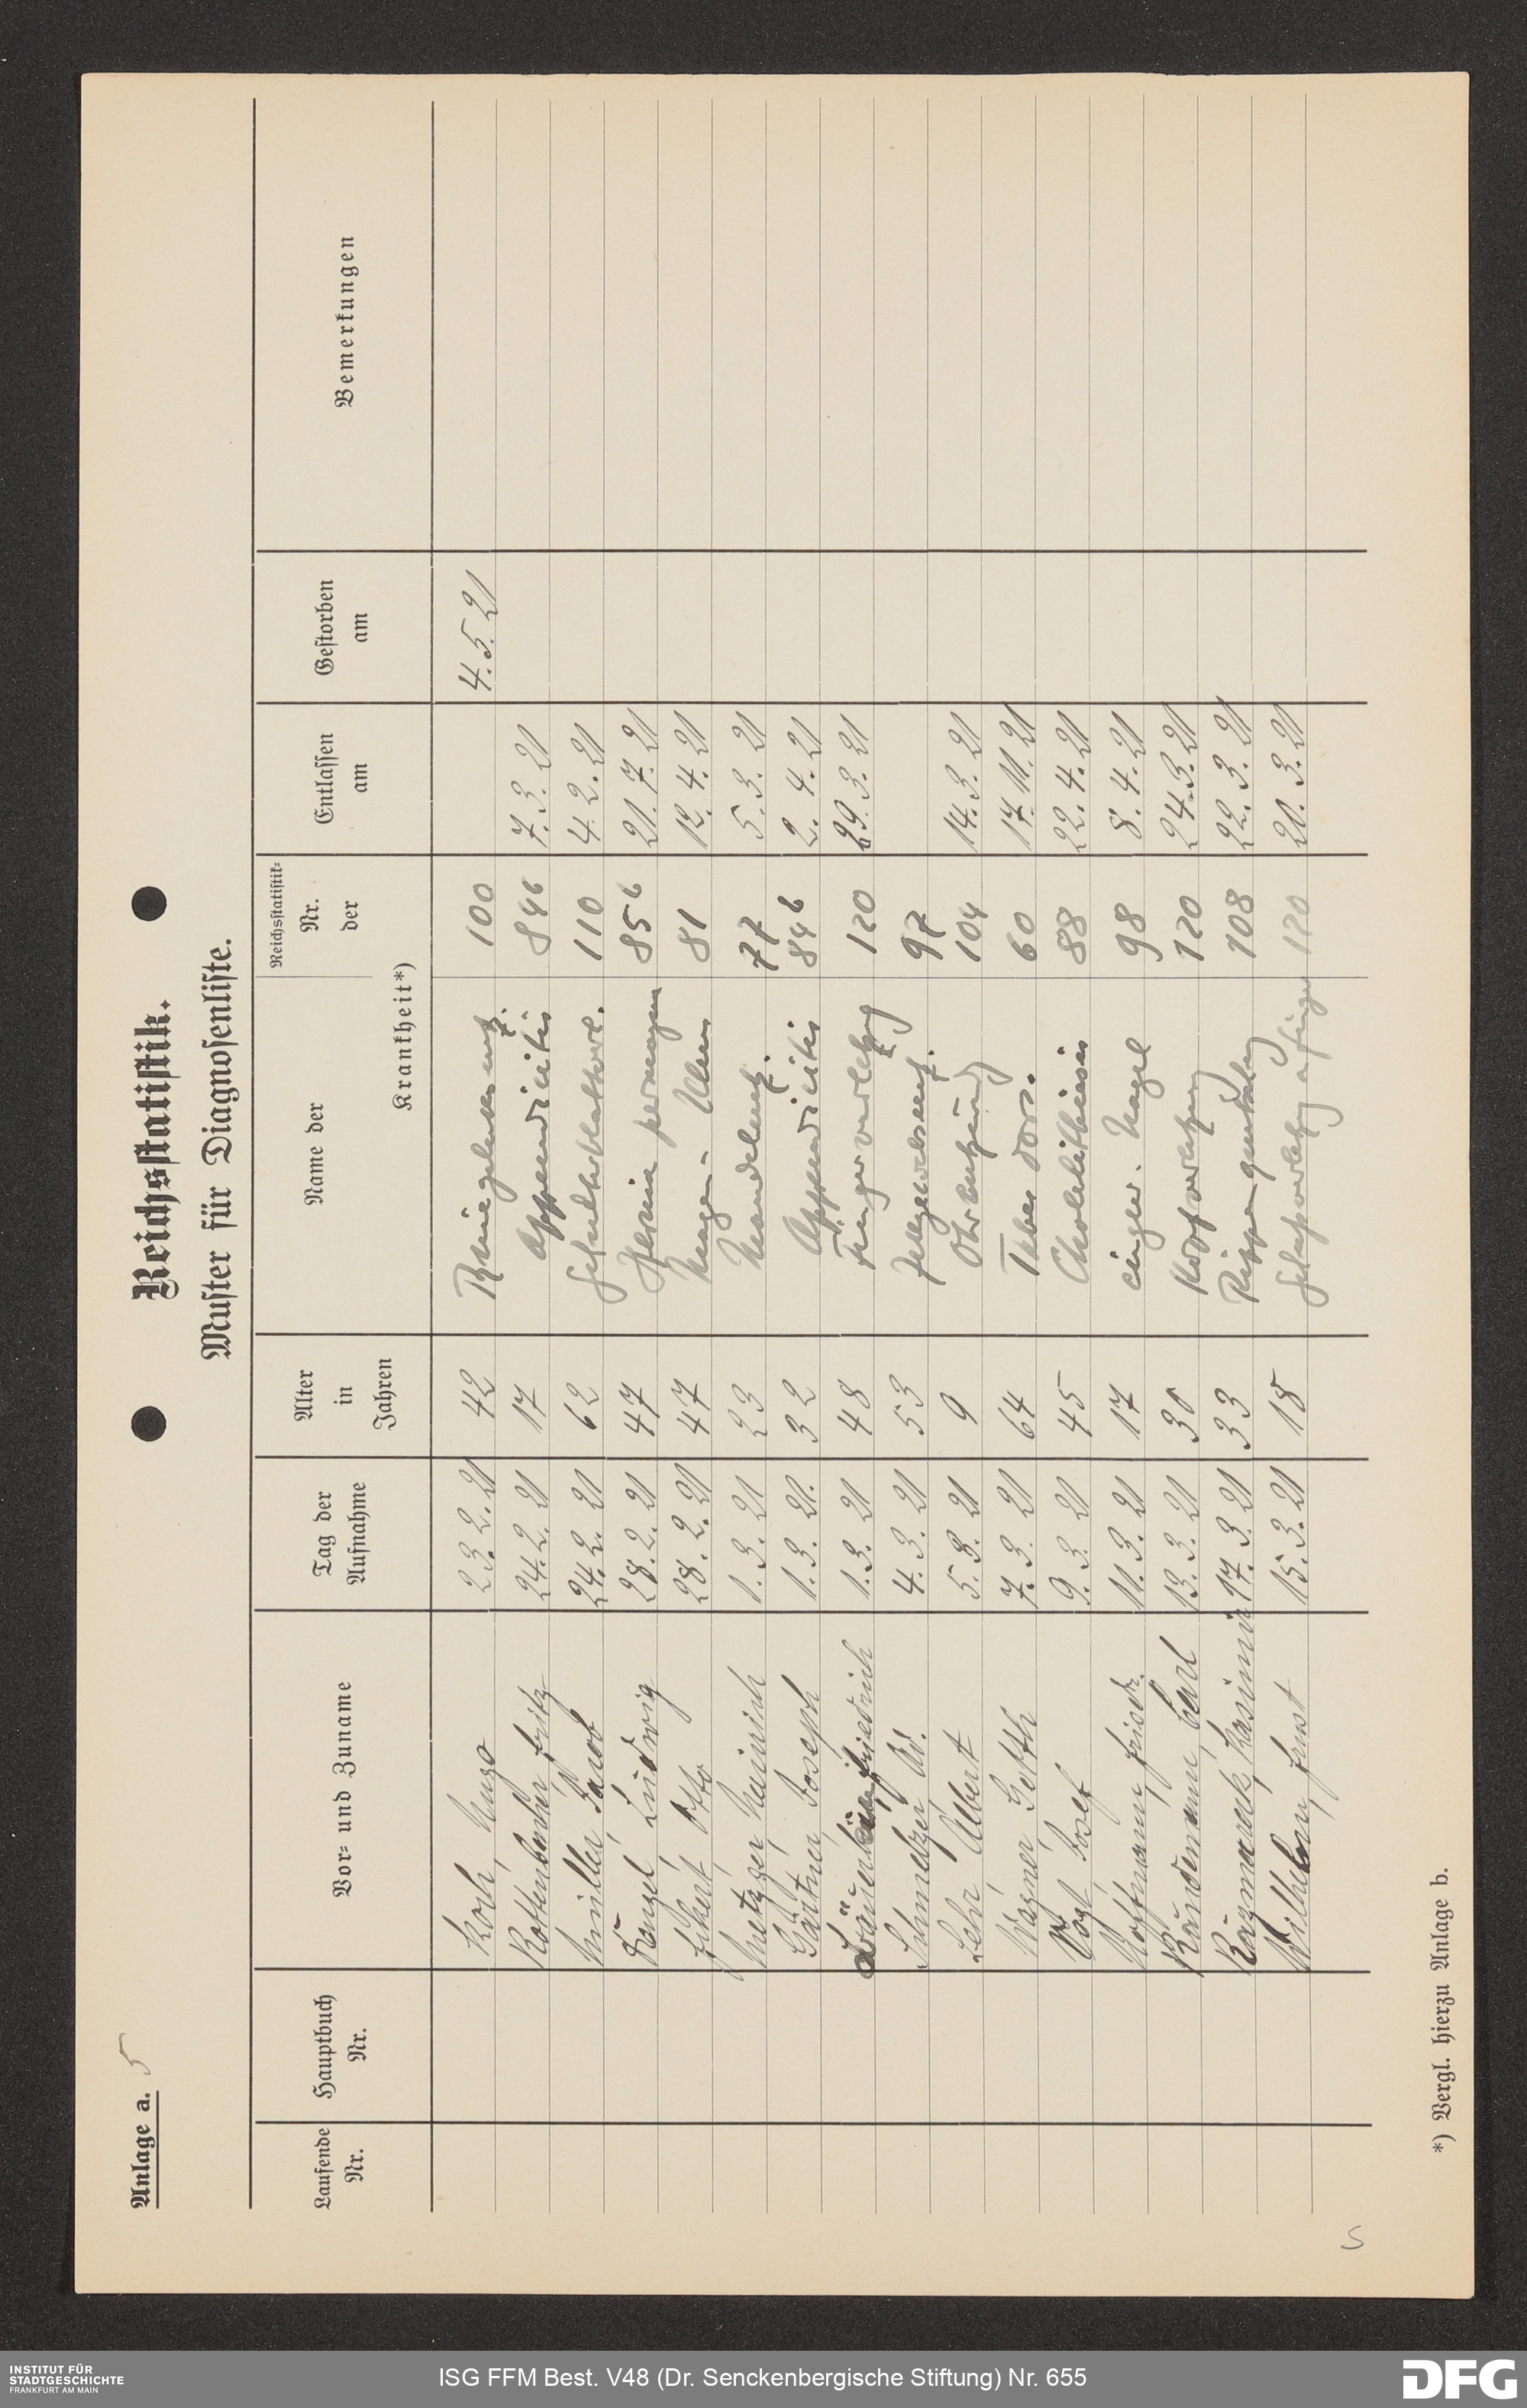 Anlage a. 5
Reichsstatistik.
Muster für Diagnosenliste.
Laufende Nr. Hauptbuch Nr. Vor- und Zuname Tag der Aufnahme Alter in Jahren Name der Reichsstatistik- Nr. der Krankheit*) Entlassen am Gestorben am Bemerkungen
Koch, Hugo 23.2.21 42 100 4.5.21
Fritz 24.2.21 17 Appendicitis 84b 7.3.21
Müller, Jakob 24.2.21 62 110 4.2.21
Ludwig 28.2.21 47 85b 21.7.21
Otto 28.2.21 47 Magen-Ulcus 81 12.4.21
Metzger, Heinrich 1.3.21 23 Mandelentz. 77 5.3.21
Gärtner, Joseph 1.3.21. 32 Appendicitis 84b 2.4.21
Friedrich 1.3.21 48 Fingerverletzung 120 29.3.21
Schmelzer, W. 4.3.21 53 Zellgewebsentz. 97
Lehr, Albert 5.3.21 9 104 14.3.21
Wagner, Gotth 7.3.21 64 Tabes dors. 60 17.11.21
Vogt, Josef 9.3.21 45 Cholelithiasis 88 22.4.21
Hoffmann, Friedr. 11.3.21 17 eingew. Nagel 98 8.4.21
Carl 13.3.21 30 Kopfverletzung 120 24.3.21
Kasimir 17.3.21 33 Rippenquetschung 108 22.3.21
Wilhelm, Ernst 15.3.21 18 Finger 120 20.3.21
*) Vergl. hierzu Anlage b.
5
INSTITUT FÜR
STADTGESCHICHTE
FRANKFURT AM MAIN
ISG FFM Best. V48 (Dr. Senckenbergische Stiftung) Nr. 655
DFG